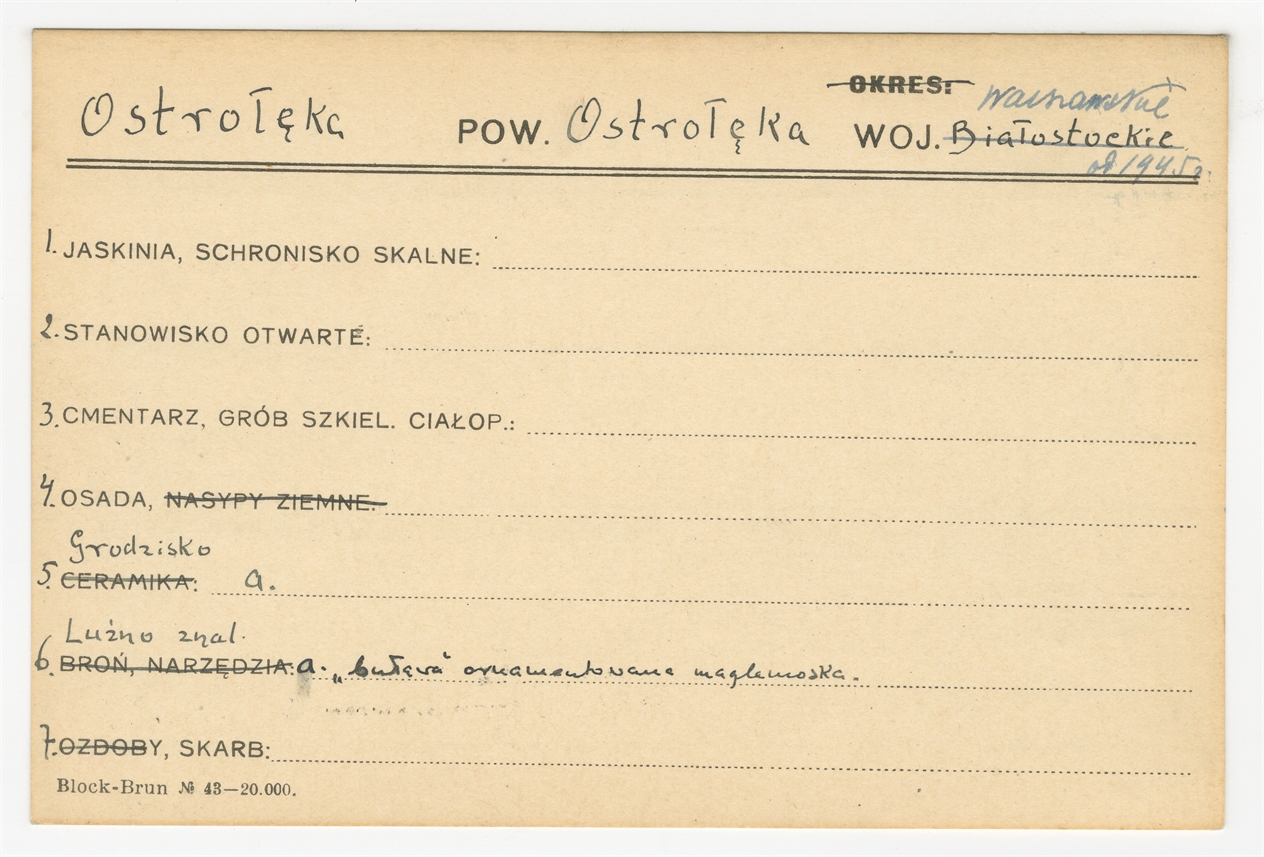 OKRES: Warszawskie
Ostrołęka POW. Ostrołęka WOJ. Białostockie
od 1945 r.
1. JASKINIA, SCHRONISKO SKALNE:
2. STANOWISKO OTWARTE:
3. CMENTARZ, GRÓB SZKIEL. CIAŁOP.:
4. OSADA, NASYPY ZIEMNE:
Grodzisko
5. CERAMIKA: a.
Luźno znal.
6. BROŃ, NARZĘDZIA: a. „buława" ornamentowana maglemoska.
7. OZDOBY, SKARB:
Block-Brun № 43—20.000.